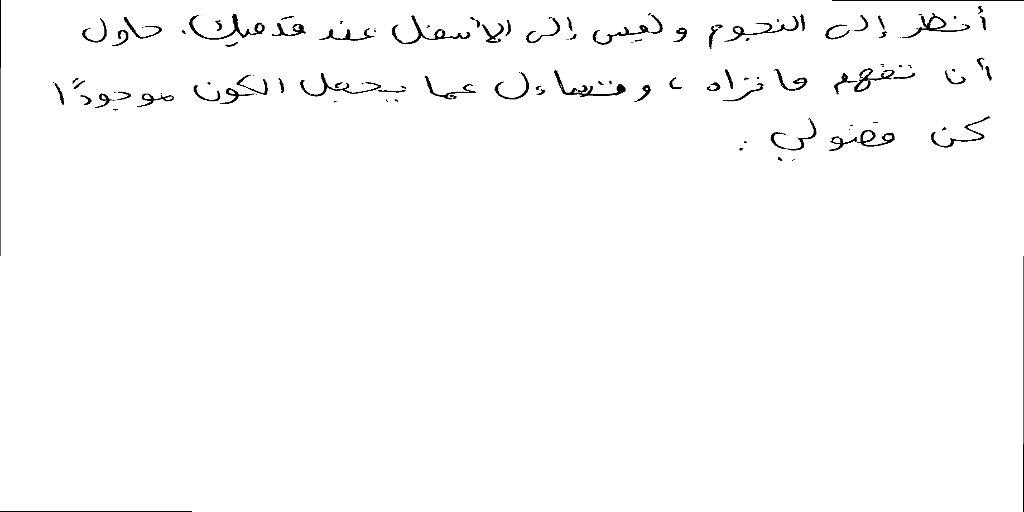 أنظر إلى النجوم وليس إلى الأسفل عند قدميك. حاول
أن تفهم ما تراه ، وتساءل عما يجعل الكون موجودًا
كن فضولي .